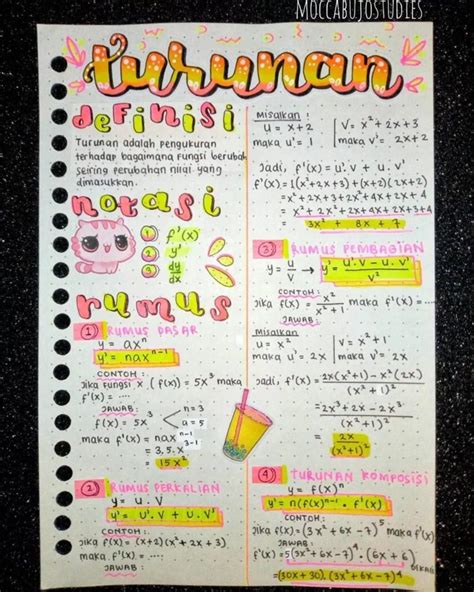 MOCCABUJOSTUDIES
turunan
definisi
Turunan adalah pengukuran
terhadap bagaimana fungsi berubah
seiring perubahan nilai yang
dimasukkan.
notasi
1 f'(x)
2 y'
3 dy/dx
rumus
1) RUMUS DASAR
y = ax^n
y' = nax^(n-1)
CONTOH :
Jika fungsi x (f(x)) = 5x³ maka
f'(x) = ....
JAWAB :
f(x) = 5x³ < n = 3
a = 5
maka f'(x) = nax^(n-1)
= 3.5.x^(3-1)
= 15x²
2) RUMUS PERKALIAN
y = u.v
y' = u'.v + u.v'
CONTOH :
Jika f(x) = (x+2)(x²+2x+3)
maka f'(x) = ....
JAWAB :
Misalkan :
u = x+2 | v = x²+2x+3
maka u' = 1 | maka v' = 2x+2
Jadi, f'(x) = u'.v + u.v'
f'(x) = 1(x²+2x+3)+(x+2)(2x+2)
= x²+2x+3+2x²+4x+2x+4
= x²+2x²+2x+4x+2x+3+4
= 3x² + 8x + 7
3) RUMUS PEMBAGIAN
y = u/v → y' = (u'.v - u.v')/v²
CONTOH :
Jika f(x) = x²/(x²+1) maka f'(x) = ....
JAWAB :
Misalkan
u = x² | v = x²+1
maka u' = 2x | maka v' = 2x
Jadi, f'(x) = (2x(x²+1) - (x²)(2x))/(x²+1)²
= (2x³+2x-2x³)/(x²+1)²
= 2x/(x²+1)²
4) TURUNAN KOMPOSISI
y = f(x)^n
y' = n(f(x))^(n-1) . f'(x)
CONTOH :
Jika f(x) = (3x²+6x-7)⁵ maka f'(x)
JAWAB :
f'(x) = 5(3x²+6x-7)⁴.(6x+6)
= (30x+30).(3x²+6x-7)⁴